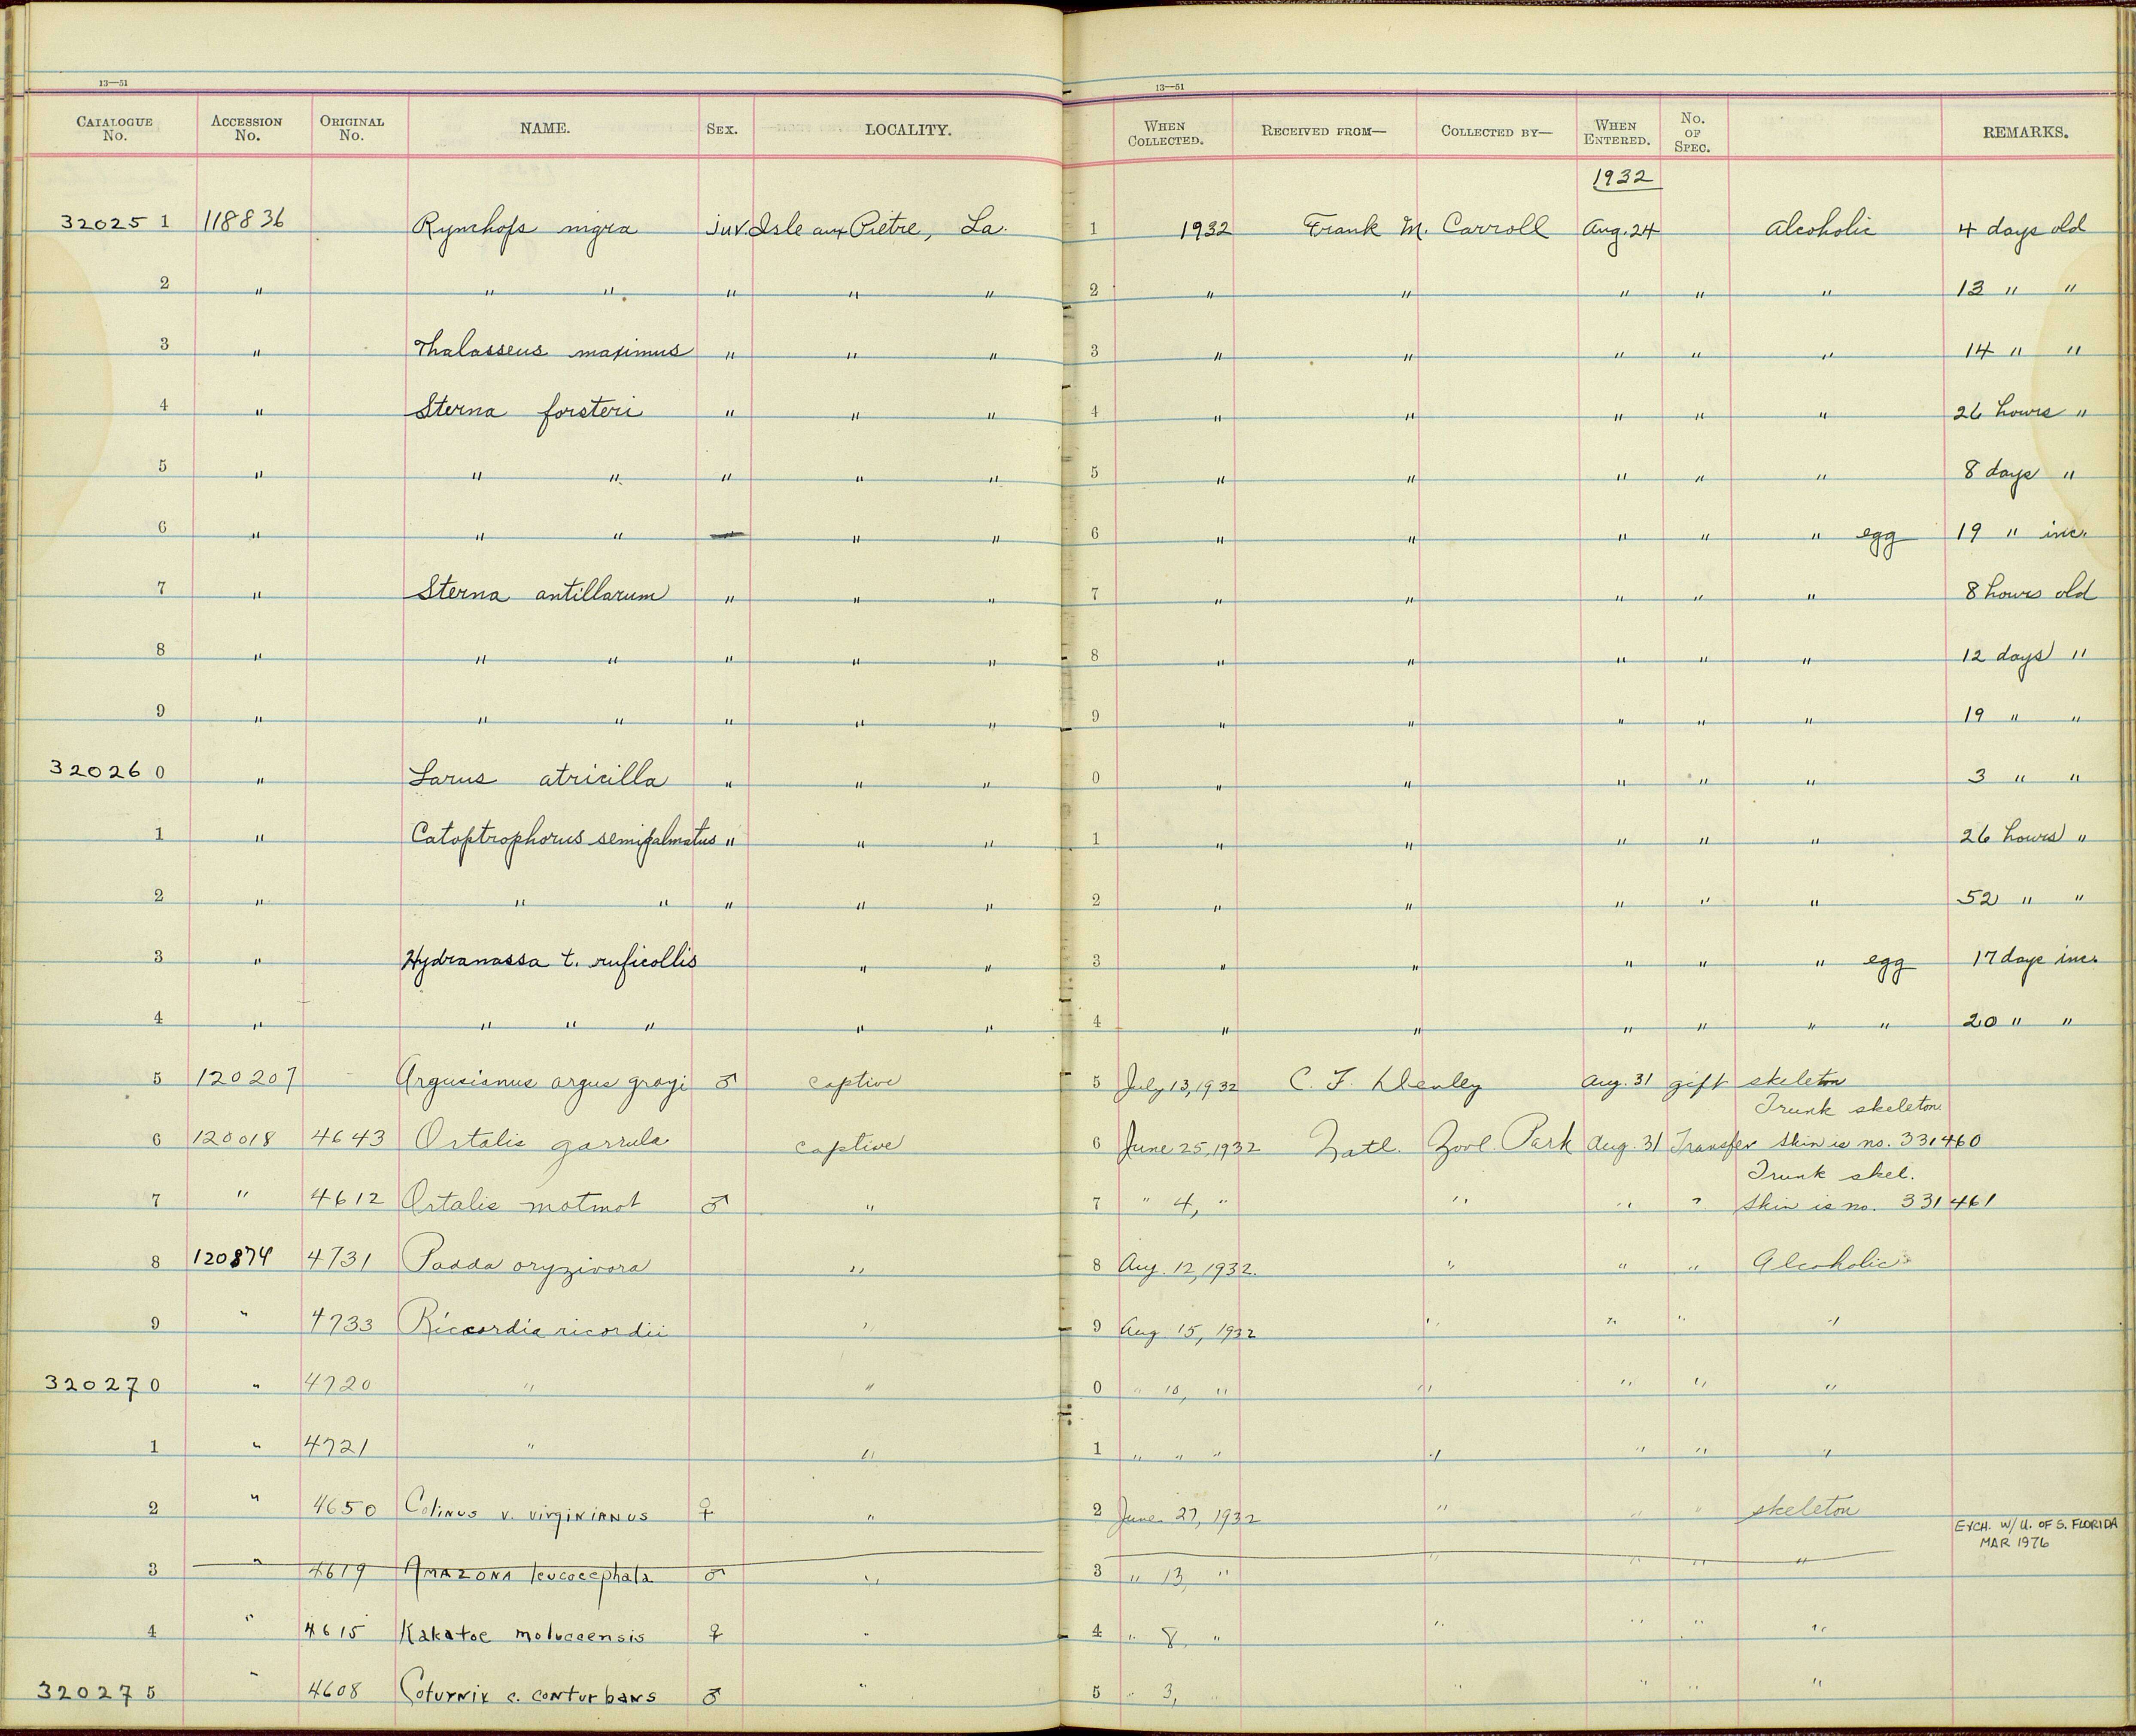 13—51 13—51
CATALOGUE No. ACCESSION No. ORIGINAL No. NAME. SEX. LOCALITY. WHEN COLLECTED. RECEIVED FROM— COLLECTED BY— WHEN ENTERED. No. OF SPEC. REMARKS.
1932
32025 1 118836 Rynchops nigra juv. Isle aux Pietre, La. 1 1932 Frank M. Carroll Aug. 24 Alcoholic 4 days old
2 " " " " " " 2 " " " " " 13 " "
3 " Thalasseus maximus " " " 3 " " " " " 14 " "
4 " Sterna forsteri " " " 4 " " " " " 26 hours "
5 " " " " " " 5 " " " " " 8 days "
6 " " " — " " 6 " " " " " egg 19 " inc.
7 " Sterna antillarum " " " 7 " " " " " 8 hours old
8 " " " " " " 8 " " " " " 12 days "
9 " " " " " " 9 " " " " " 19 " "
32026 0 " Larus atricilla " " " 0 " " " " " 3 " "
1 " Catoptrophorus semipalmatus " " " 1 " " " " " 26 hours "
2 " " " " " " 2 " " " " " 52 " "
3 " Hydranassa t. ruficollis " " 3 " " " " " egg 17 days inc.
4 " " " " " " 4 " " " " " " 20 " "
5 120207 Argusianus argus grayi ♂ captive 5 July 13, 1932 C. F. Denley Aug. 31 gift skeleton
Trunk skeleton
6 120018 4643 Ortalis garrula captive 6 June 25, 1932 Natl. Zool. Park Aug. 31 Transfer Skin is no. 331460
Trunk skel.
7 " 4612 Ortalis motmot ♂ " 7 " 4, " " " " Skin is no. 331461
8 120874 4731 Padda oryzivora " 8 Aug. 12, 1932. " " " Alcoholic
9 " 4733 Riccordia ricordii " 9 Aug 15, 1932 " " " "
32027 0 " 4720 " " 0 " 10, " " " " "
1 " 4721 " " 1 " " " " " " "
2 " 4650 Colinus v. virginianus ♀ " 2 June 27, 1932 " " " skeleton
EXCH. W/ U. OF S. FLORIDA
MAR 1976
3 " 4619 Amazona leucocephala ♂ " 3 " 13, " " " " "
4 " 4615 Kakatoe moluccensis ♀ " 4 " 8, " " " " "
32027 5 " 4608 Coturnix c. conturbans ♂ " 5 " 3, " " " " "